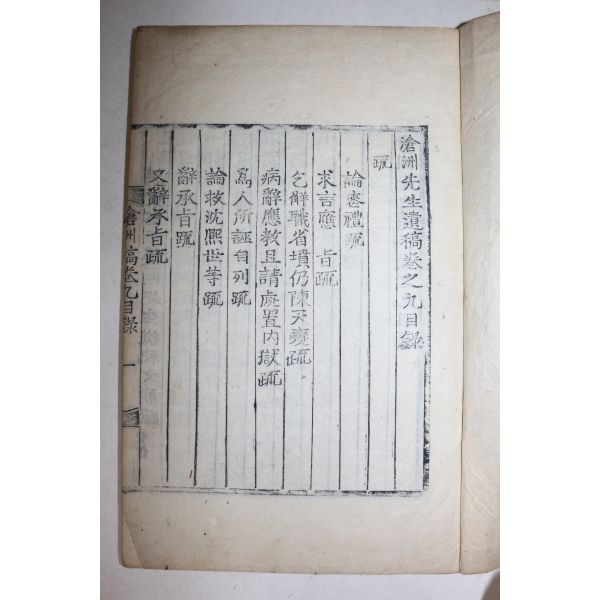 滄洲先生遺稿卷之九目錄
疏
論喪禮疏
求言應 旨疏
乞解職省墳仍陳天變疏
病辭應教且請處置內獄疏
爲人所誣自列疏
論救沈熙世等疏
辭承旨疏
又辭承旨疏
滄洲稿卷九目錄 一